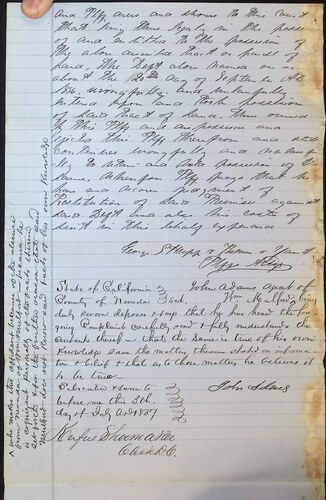 and Plff avers and shows to this Court
that being thus
of and entitled to the possession of
the above described tract or parcel of
land, the Deft above named on or
about the 12th day of September AD
1856, wrongfully and unlawfully
entered upon and took possession
of said tract of land then owned
by this Plff and in possession and
ejected this Plff therefrom and still
continues wrongfully and unlawful
ly to enter and hold possession of the
same, wherefore Plff prays that he
have and recover judgment of
Restitution of said Premises against
said Deft and also his costs of
suit in this behalf expended
Plffs Attys
State of California
County of Nevada } Sct.
John Adams agent of
Wm M being
duly sworn deposes & says that he has heard the fore
going Complaint carefully read & fully understands the
contents thereof & that the same is true of his own
Knowledge save the matters therein stated on informa
tion & belief & that as to those matters he believes it
to be true
Subscribed & sworn to
before me this 5th
day of July AD 1857
John Adams
Rufus Shoemaker
Clerk D.C.
& who makes this affidavit because of the absence
from Nevada County of and because he
set forth & for the further reason that said
resident does not know said facts of his own knowledge